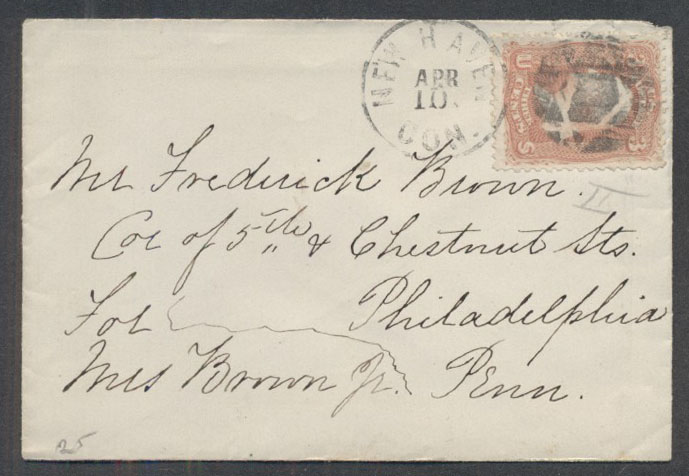 NEW HAVEN
APR
10.
CON.
U S
3
Mr Frederick Brown.
Cor of 5th & Chestnut Sts.
For Philadelphia
Mrs Brown Jr. Penn.
25